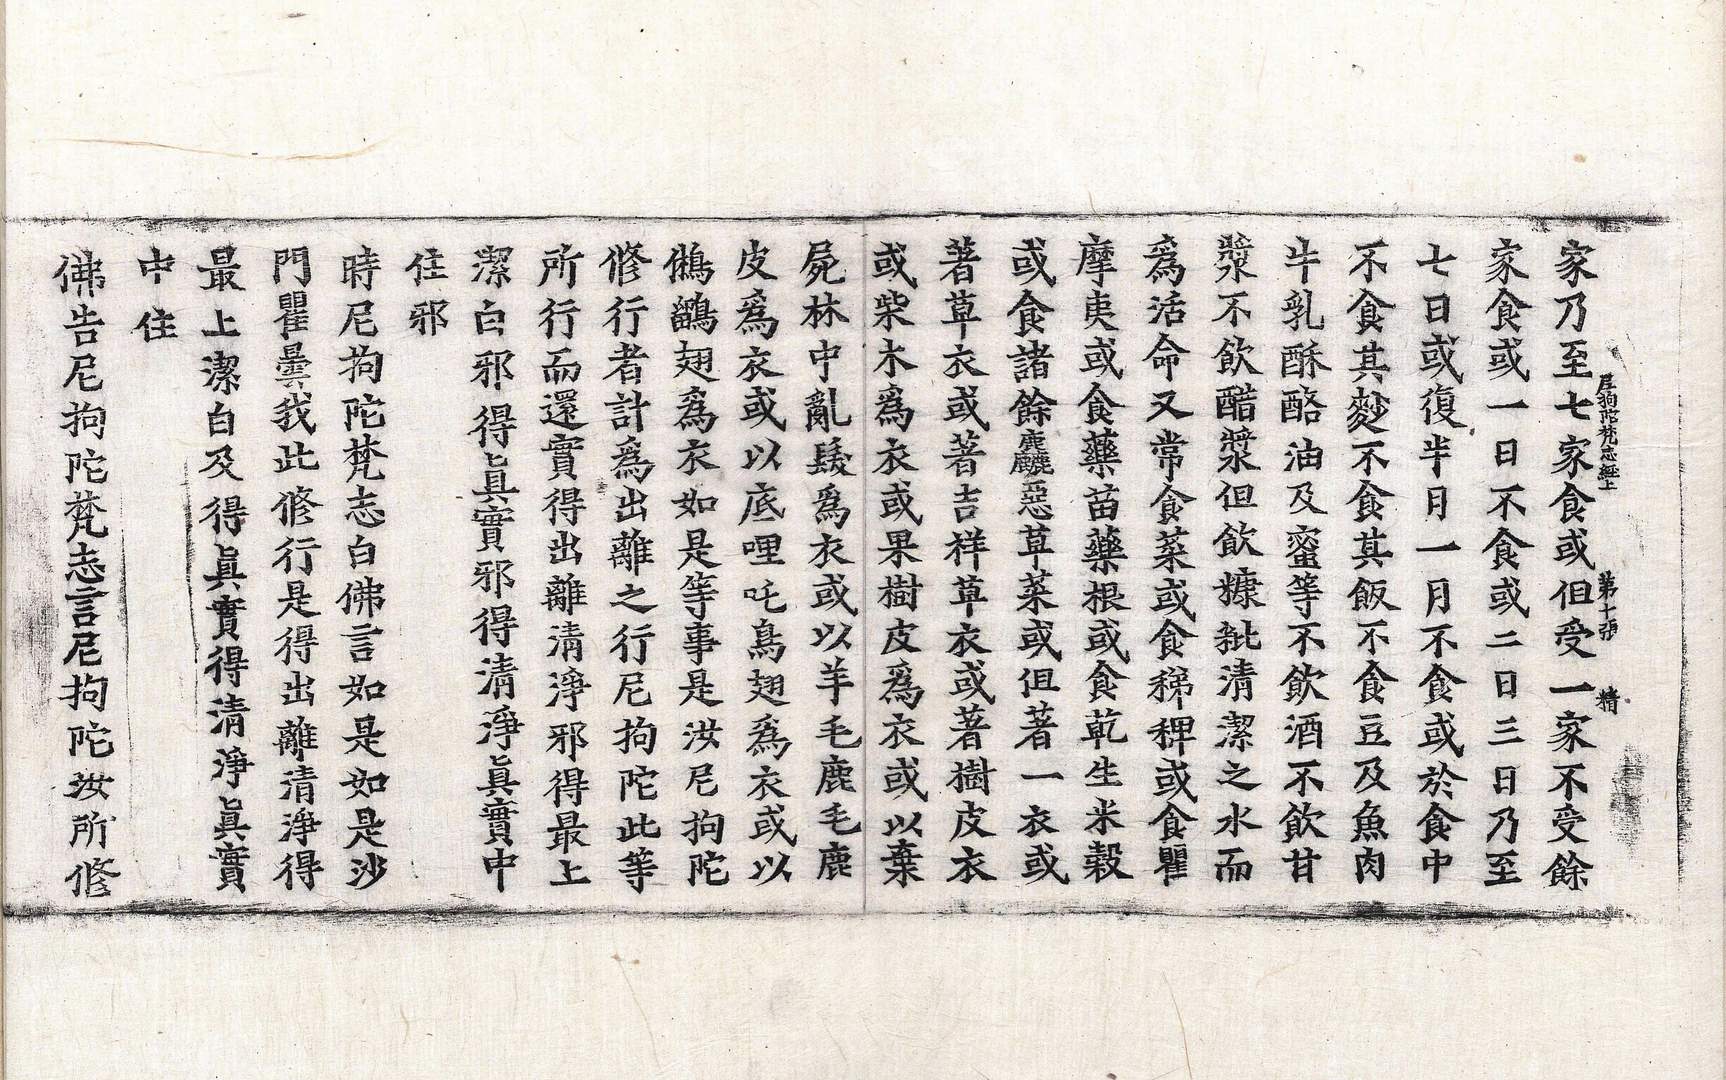 尼拘陀梵志經上　第十張　精
家乃至七家食或但受一家不受餘
家食或一日不食或二日三日乃至
七日或復半月一月不食或於食中
不食其麨不食其飯不食豆及魚肉
牛乳酥酪油及蜜等不飲酒不飲甘
漿不飲醋漿但飲糠秕清潔之水而
爲活命又常食菜或食稊稗或食瞿
摩夷或食藥苗藥根或食乾生米穀
或食諸餘麁麤惡草菜或但著一衣或
著草衣或著吉祥草衣或著樹皮衣
或柴木爲衣或果樹皮爲衣或以棄
屍林中亂髮爲衣或以羊毛鹿毛鹿
皮爲衣或以底哩吒鳥翅爲衣或以
鵂鶹翅爲衣如是等事是汝尼拘陀
修行者計爲出離之行尼拘陀此等
所行而還實得出離清淨邪得最上
潔白邪得眞實邪得清淨眞實中
住邪
時尼拘陀梵志白佛言如是如是沙
門瞿曇我此修行是得出離清淨得
最上潔白及得眞實得清淨眞實
中住
佛告尼拘陀梵志言尼拘陀汝所修